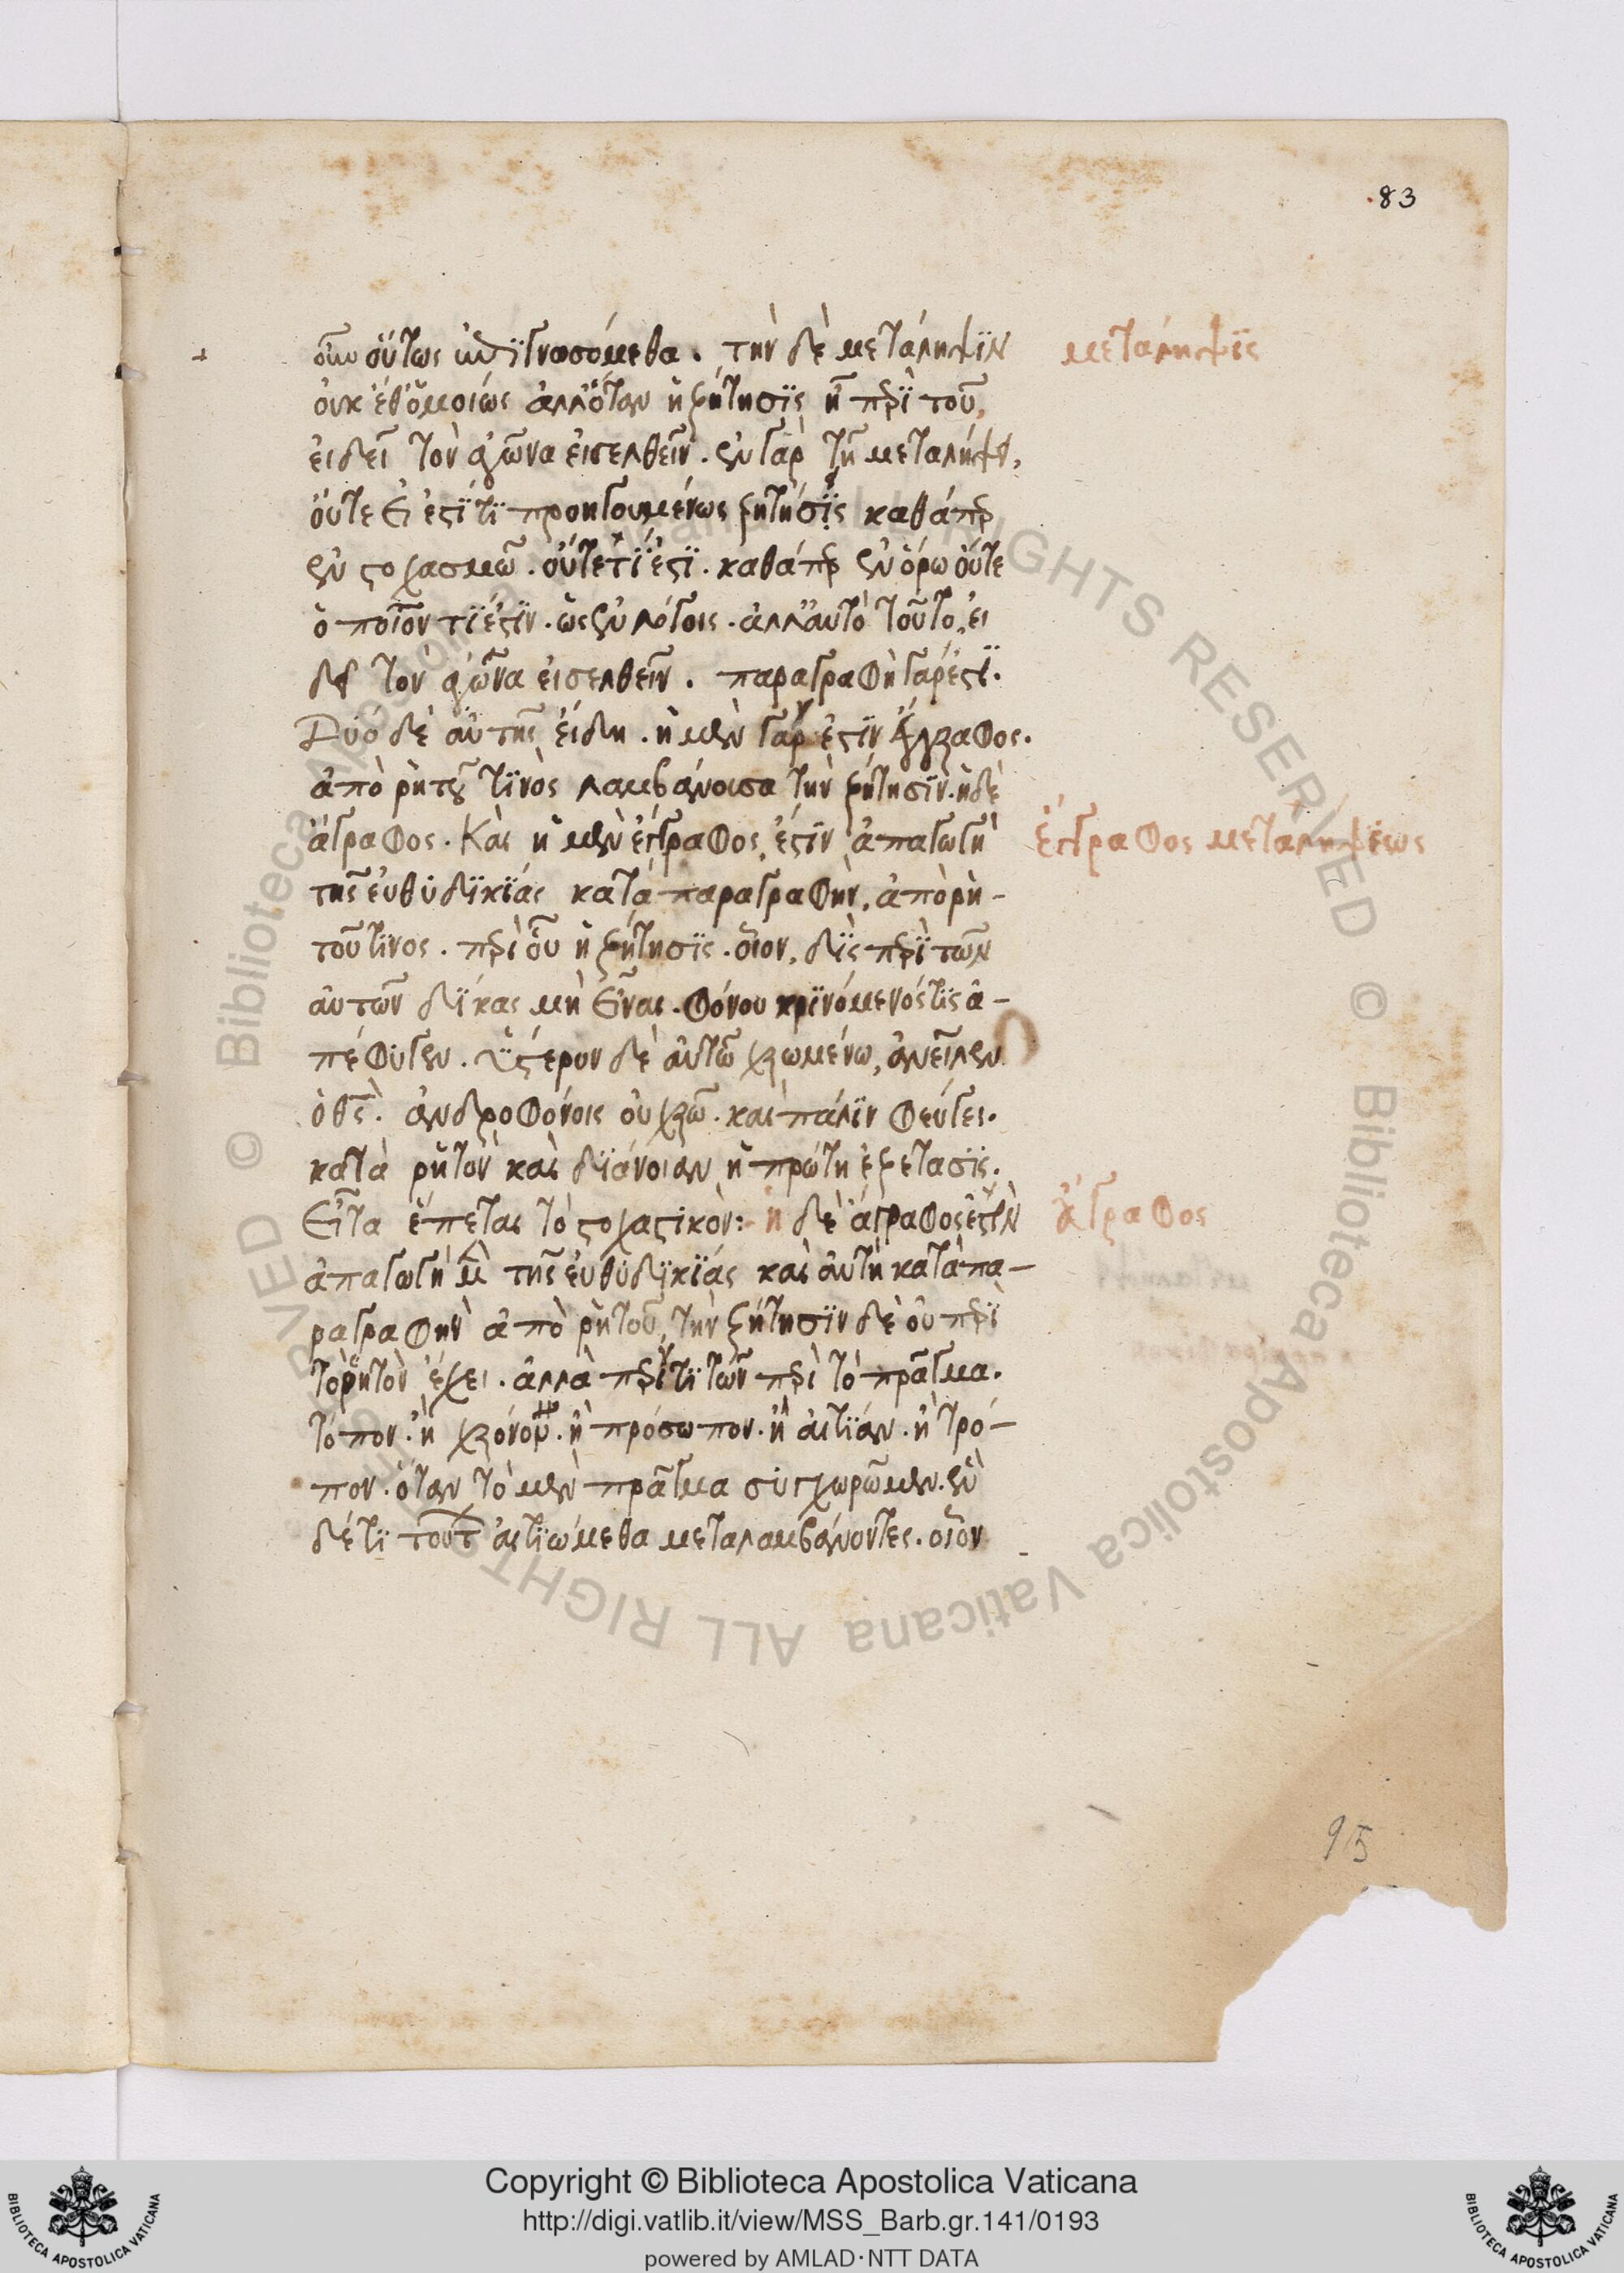 83
οὖν οὕτως ἐπιγνωσόμεθα. τὴν δὲ μετάληψϊν
μετάληψϊς
οὐκ ἔθ' ὁμοίως ἀλλ' ὅταν ἡ ζήτησϊς ᾖ περὶ τοῦ,
εἰ δεῖ τὸν ἀγῶνα εἰσελθεῖν. ἐν γὰρ τῇ μεταλήψει,
οὔτε εἰ ἐστί τϊ προηγουμένως ζητήσϊς καθάπερ
ἐν στοχασμῶ. οὔτε τΐ ἐστϊ. καθάπερ ἐν ὅρω οὔτε
ὁποῖον τΐ ἐστϊν. ὡς ἐν λόγοις. ἀλλ' αὐτὸ τοῦτο, εἰ
δεῖ τὸν ἀγῶνα εἰσελθεῖν. παραγραφὴ γάρ ἐστϊ.
Δύο δὲ αὐτῆς εἴδη. ἡ μὲν γάρ ἐστϊν ἔγγραφος.
ἀπὸ ῥητοῦ τϊνὸς λαμβάνουσα τὴν ζήτησϊν. ἡ δὲ
ἄγραφος. Καὶ ἡ μὲν ἔγγραφος, ἐστϊν ἀπαγωγὴ
ἔγγραφος μεταλήψεως
τῆς εὐθυδϊκΐας κατὰ παραγραφὴν, ἀπὸ ῥη-
τοῦ τϊνος. περὶ οὗ ἡ ζήτησϊς. οἷον, δῒς περὶ τῶν
αὐτῶν δΐκας μὴ εἶναι. φόνου κρϊνόμενός τϊς ἀ-
πέφυγεν. ὕστερον δὲ αὐτῶ χρωμένω, ἀνεῖλεν
ὁ θεός. ἀνδροφόνοις οὐ χρῶ. καὶ πάλϊν φεύγει.
κατὰ ῥητὸν καὶ δϊάνοιαν ἡ πρώτη ἐξέτασϊς.
Εἶτα ἕπεται τὸ στοχαστικόν: ἡ δὲ ἄγραφος ἐστὶν
ἄγραφος
ἀπαγωγὴ μὲν τῆς εὐθυδϊκΐας καὶ αὐτὴ κατὰ πα-
ραγραφὴν ἀπὸ ῥητοῦ, τὴν ζήτησϊν δὲ οὐ περὶ
τὸ ῥητὸν ἔχει. ἀλλὰ περΐ τϊ τῶν περὶ τὸ πρᾶγμα.
τόπον. ἢ χρόνον. ἢ πρόσωπον. ἢ αἰτΐαν. ἢ τρό-
πον. ὅταν τὸ μὲν πρᾶγμα συγχωρῶμεν. ἓν
δέ τϊ τούτων αἰτϊώμεθα μεταλαμβάνοντες. οἷον
95
Copyright © Biblioteca Apostolica Vaticana
http://digi.vatlib.it/view/MSS_Barb.gr.141/0193
powered by AMLAD·NTT DATA
BIBLIOTECA APOSTOLICA VATICANA
BIBLIOTECA APOSTOLICA VATICANA